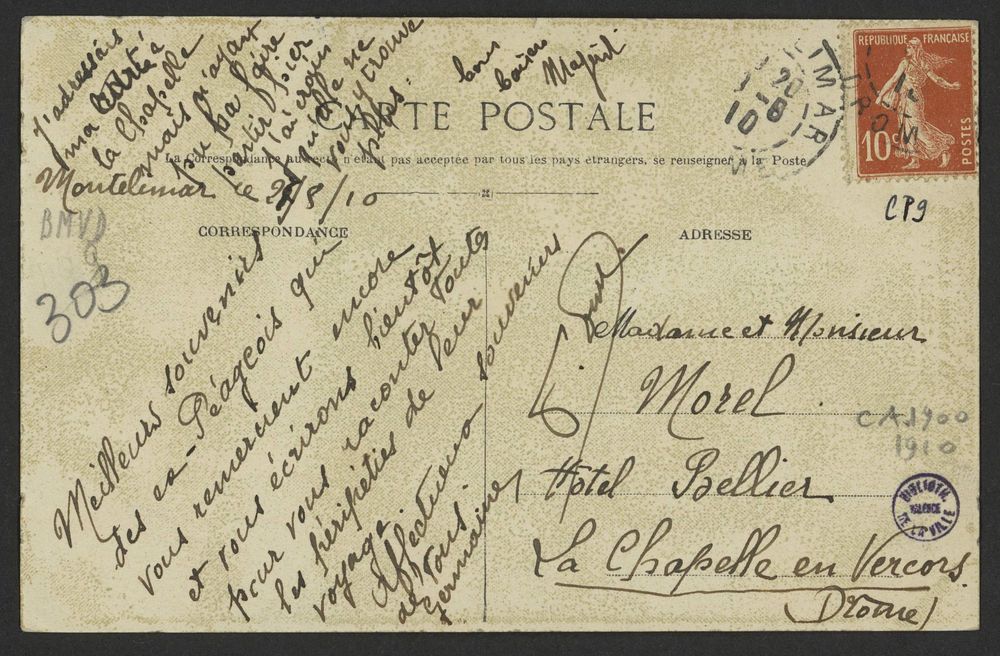 J'adressais
ma carte à
la Chapelle
mais n'ayant
pu la faire
partir hier
j'ai appris
qu'elle ne
vous y trouve
plus.
bons
baisers
CARTE POSTALE
La Correspondance au recto n'étant pas acceptée par tous les pays étrangers, se renseigner à la Poste
Montelimar le 2/8/10
CORRESPONDANCE
Meilleurs souvenirs
des ex-Péageois qui
vous remercient encore
et vous écrirons bientôt
pour vous raconter toutes
les péripéties de leur
voyage
Affectueux souvenirs
de tous.
Germaine
ADRESSE
Madame et Monsieur
Morel
Hôtel Bellier
La Chapelle en Vercors
(Drôme)
RÉPUBLIQUE FRANÇAISE
10c
POSTES
TIMAR
20
8
10
CP9
BMVD
303
CA1900
1910
BIBLIOTH.
VALENCE
DE LA VILLE